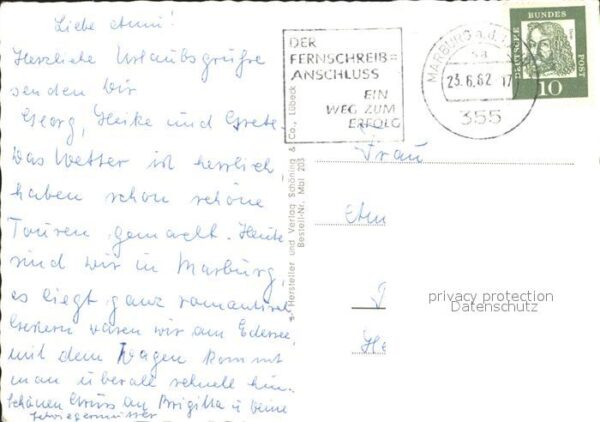 Liebe Anni!
Herzliche Urlaubsgrüsse
senden Dir
Georg, Heike und Grete.
Das Wetter ist herrlich
haben schon schöne
Touren gemacht. Heute
sind wir in Marburg
es liegt ganz romantisch
Gestern waren wir am Edersee,
mit dem Wagen kommt
man überall schnell hin.
Schönen Gruss an Brigitta u deine
Schwiegermutter
DER
FERNSCHREIB=
ANSCHLUSS
EIN
WEG ZUM
ERFOLG
MARBURG
23.6.62 17
355
DEUTSCHE BUNDES POST
10
Hersteller und Verlag Schöning & Co., Lübeck
Bestell-Nr. Mbl 203
Frau
privacy protection
Datenschutz